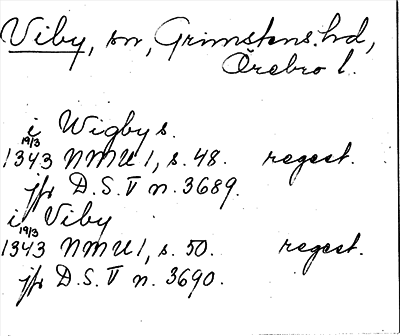 Viby, sn, Grimstens hd,
Örebro l.
i Wigby s.
19/3
1343 NMU 1, s. 48. regest.
jfr D.S. V n. 3689.
i Viby
19/3
1343 NMU 1, s. 50. regest.
jfr D.S. V n. 3690.